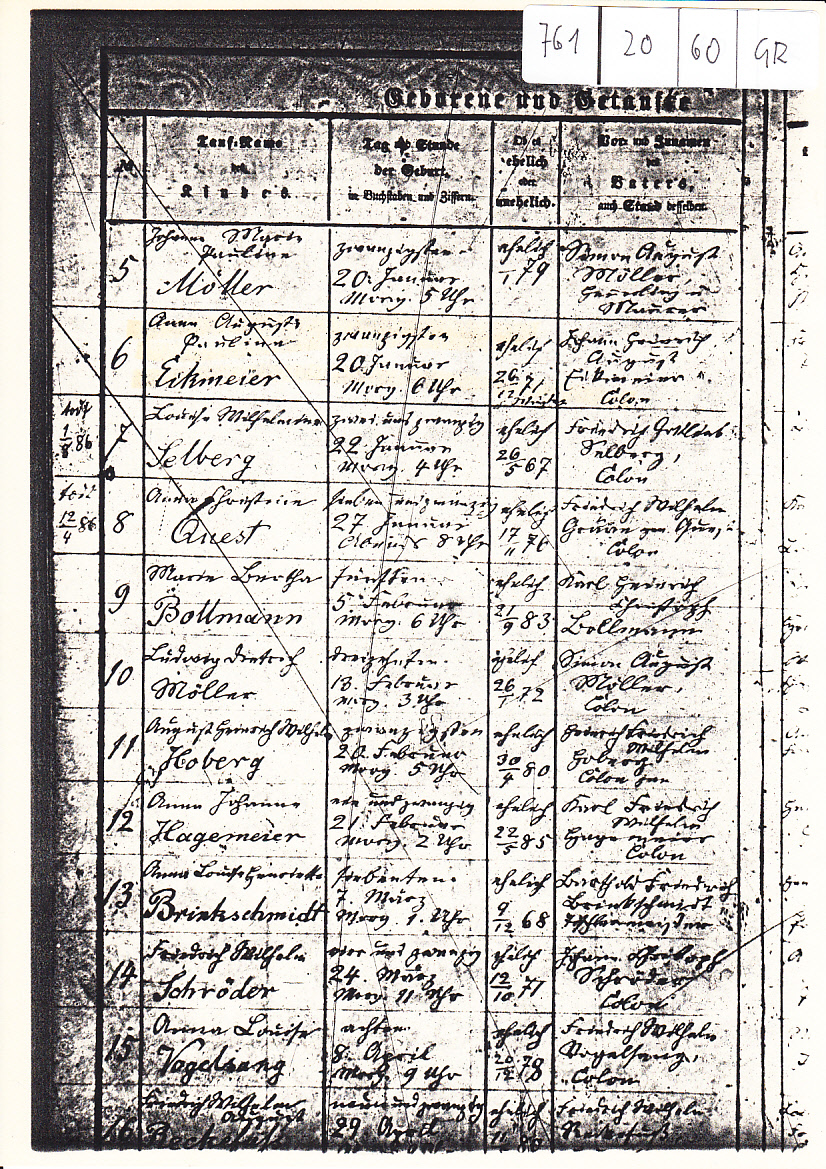 761 20 60 GR
Geborene und Getaufte
Tauf-Name
des
Kindes.
Tag & Stunde
der Geburt.
in Buchstaben und Ziffern.
Ob es
ehelich
oder
unehelich.
Vor- und Zunamen
des
Vaters,
auch Stand desselben.
5
Johanne Marie
Pauline
Möller
zwanzigsten
20. Januar
Morg. 5 Uhr
ehelich
79
Simon August
Möller,
Maurer
6
Anna Auguste
Pauline
Eikmeier
zwanzigsten
20. Januar
Morg. 6 Uhr
ehelich
26
Johann Heinrich
August
Eikmeier
Colon
todt
1/8 86
7
Louise Wilhelmine
Selberg
zwei und zwanzig
22 Januar
Morg. 4 Uhr
ehelich
26/5 67
Friedrich Gottlieb
Selberg,
Colon
todt
12/4 86
8
Anna Christine
Quest
sieben und zwanzig
27 Januar
Abends 8 Uhr
ehelich
17/11 76
Friedrich Wilhelm
Colon
9
Marie Bertha
Bollmann
fünften
5. Februar
Morg. 6 Uhr
ehelich
21/9 83
Karl Heinrich
Christoph
Bollmann
10
Ludwig Dietrich
Möller
dreizehnten
13. Februar
Morg. 3 Uhr
ehelich
26/1 72
Simon August
Möller,
Colon
11
August Heinrich Wilhelm
Hoberg
zwanzigsten
20. Februar
Morg. 5 Uhr
ehelich
30/4 80
Heinrich Friedrich
Wilhelm
Hoberg
Colon
12
Anna Johanne
Hagemeier
ein und zwanzig
21. Februar
Morg. 2 Uhr
ehelich
22/5 85
Karl Friedrich
Wilhelm
Hagemeier
Colon
13
Anna Louise Henriette
Brinkschmidt
siebenten
7. März
Morg. 1. Uhr
ehelich
9/12 68
Barthold Friedrich
Brinkschmidt
Tischlermeister
14
Friedrich Wilhelm
Schröder
vier und zwanzig
24 März
Morg. 11 Uhr
ehelich
12/10 71
Johann Christoph
Schröder
Colon
15
Anna Louise
Vogelsang
achten
8. April
Morg. 9 Uhr
ehelich
20/12 78
Friedrich Wilhelm
Vogelsang,
Colon
16
Friedrich Wilhelm
August
neun und zwanzig
29 April
ehelich
Friedrich Wilhelm